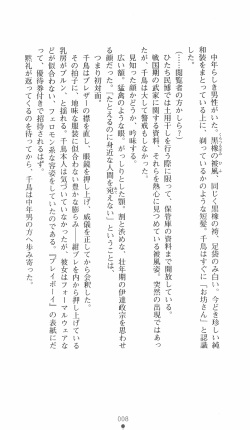 中年らしき男性がいた。黒橡の被風、同じく黒橡の袴、足袋のみ白い。今どき珍しい純
和装をまとっている上に、剃っているかのような短髪。千鳥はすぐに「お坊さん」と認識
した。
（……閲覧者の方かしら？）
ひたち民博では土用干しを行う際に限って、保管庫の資料まで開放している。
戦国期の武家に関する資料。それらを熱心に見つめている被風姿。突然の出現ではあっ
たが、千鳥は大して警戒もしなかった。
見知った顔かどうか、吟味する。
広い額。猛禽のような眼。がっしりした顎。割と渋めな、壮年期の伊達政宗を思わせ
る顔だった。（たのに身近な人間を喩えない）ということは、
つまり初対面。
千鳥はブレザーの襟を直し、眼鏡を押し上げ、威儀を正してから会釈した。
その拍子に、地味な服装に似合わない豊かな膨らみ――紺ブレを内から押し上げている
乳房がプルン、と揺れる。千鳥本人は気づいていなかったが、彼女はフォーマルウェアな
どが似合わない、フェロモン系な容姿をしていたのだ。『プレイボーイ』の表紙にだ
って、優待券付きで招待されるはず。
黙礼が返ってくるのを待って、千鳥は中年の男の方へ歩み寄った。
008